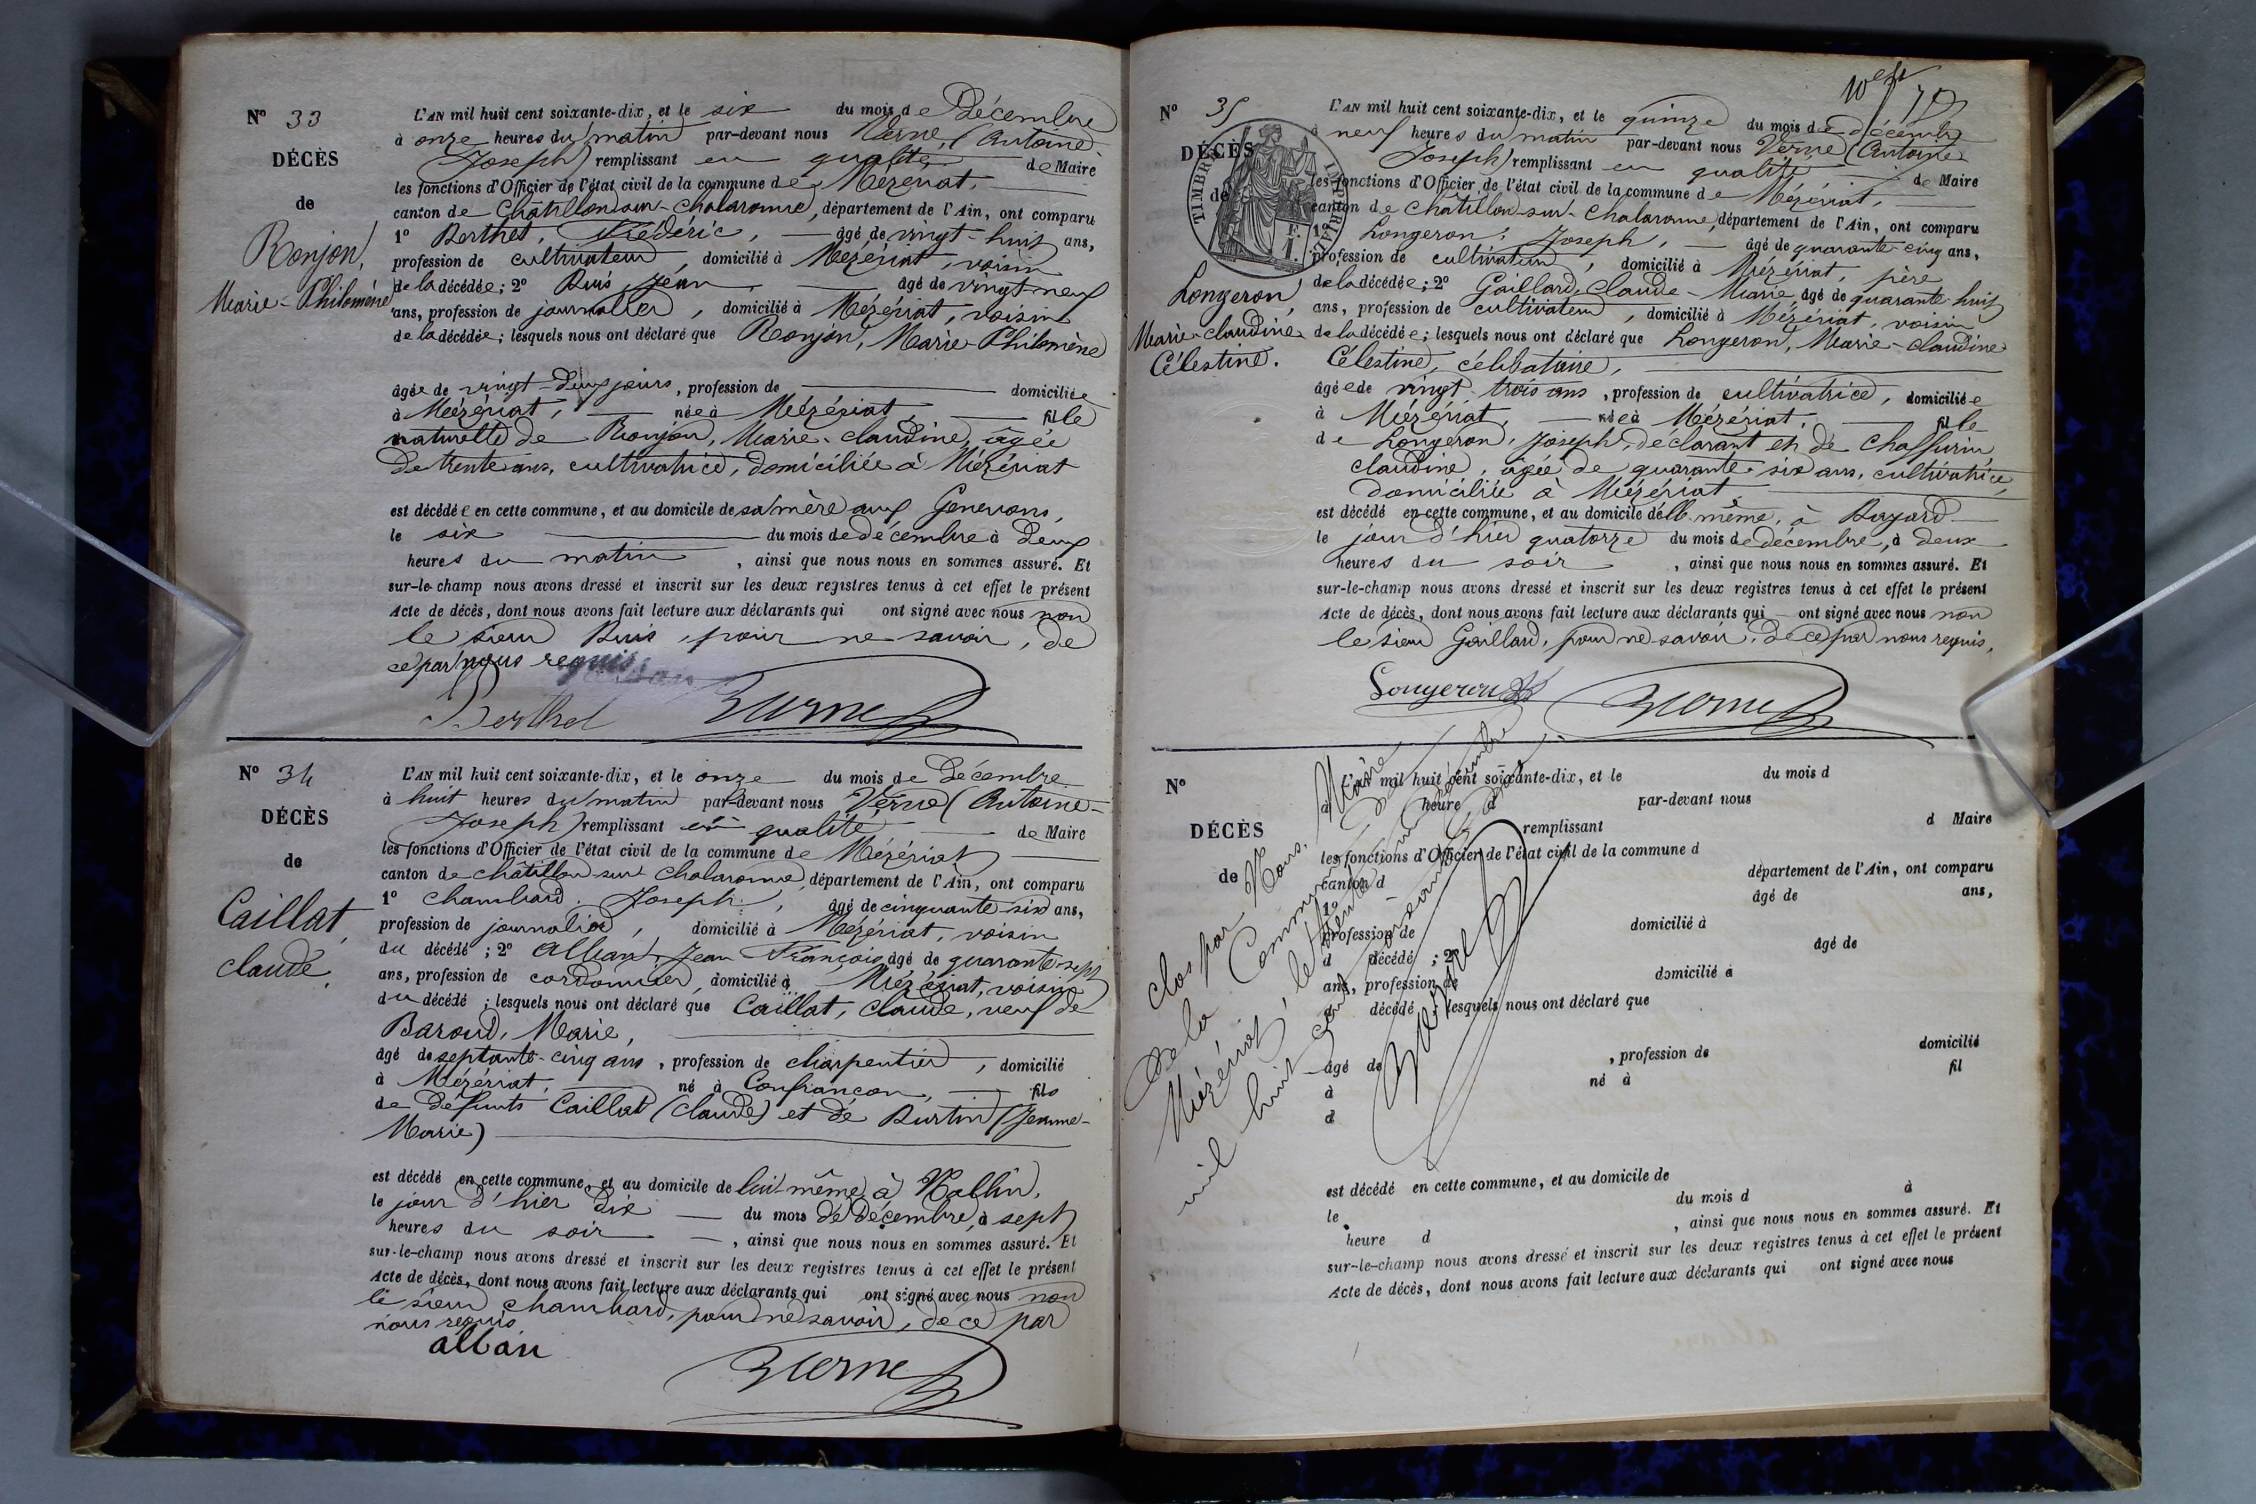 Nº 33
DÉCÈS
de
Ronjon,
Marie-Philomène
L'AN mil huit cent soixante-dix, et le six du mois de Décembre
à onze heures du matin par-devant nous Verne, (Antoine
Joseph) remplissant en qualité de Maire
les fonctions d'Officier de l'état civil de la commune de Mézériat,
canton de Châtillon-sur-Chalaronne, département de l'Ain, ont comparu
1º Berthet, Frédéric, âgé de vingt-huit ans,
profession de cultivateur, domicilié à Mézériat, voisin
de la décédée; 2º Buis, Jean, âgé de vingt-neuf
ans, profession de journalier, domicilié à Mézériat, voisin
de la décédée; lesquels nous ont déclaré que Ronjon, Marie-Philomène
âgée de vingt-deux jours, profession de domiciliée
à Mézériat, née à Mézériat, fille
naturelle de Ronjon, Marie-claudine, âgée
de trente ans, cultivatrice, domiciliée à Mézériat
est décédée en cette commune, et au domicile de sa mère aux Genevons,
le six du mois de décembre à deux
heures du matin, ainsi que nous nous en sommes assuré. Et
sur-le-champ nous avons dressé et inscrit sur les deux registres tenus à cet effet le présent
Acte de décès, dont nous avons fait lecture aux déclarants qui ont signé avec nous non
le sieur Buis, pour ne savoir, de
ce par nous requis
Berthet Verne
Nº 34
DÉCÈS
de
Caillat,
claude,
L'AN mil huit cent soixante-dix, et le onze du mois de Décembre
à huit heures du matin par-devant nous Verne (Antoine-
Joseph) remplissant en qualité de Maire
les fonctions d'Officier de l'état civil de la commune de Mézériat
canton de châtillon sur Chalaronne, département de l'Ain, ont comparu
1º chambard, Joseph, âgé de cinquante-six ans,
profession de journalier, domicilié à Mézériat, voisin
du décédé; 2º Alban, Jean François, âgé de quarante-sept
ans, profession de cordonnier, domicilié à Mézériat, voisin
du décédé; lesquels nous ont déclaré que Caillat, Claude, veuf de
Baroud, Marie,
âgé de septante-cinq ans, profession de charpentier, domicilié
à Mézériat, né à Confrançon, fils
de défunts Caillat (claude) et de Burtin (Jeanne-
Marie)
est décédé en cette commune, et au domicile de lui-même, à
le jour d'hier dix du mois de Décembre, à sept
heures du soir, ainsi que nous nous en sommes assuré. Et
sur-le-champ nous avons dressé et inscrit sur les deux registres tenus à cet effet le présent
Acte de décès, dont nous avons fait lecture aux déclarants qui ont signé avec nous non
le sieur chambard, pour ne savoir, de ce par
nous requis
alban
Verne
Nº 35
DÉCÈS
de
TIMBRE IMPÉRIAL
Longeron,
Marie-claudine
Célestine.
L'AN mil huit cent soixante-dix, et le quinze du mois de décembre
à neuf heures du matin par-devant nous Verne (Antoine
Joseph) remplissant en qualité de Maire
les fonctions d'Officier de l'état civil de la commune de Mézériat,
canton de Châtillon-sur-Chalaronne, département de l'Ain, ont comparu
1º Longeron, Joseph, âgé de quarante-cinq ans,
profession de cultivateur, domicilié à Mézériat, père
de la décédée; 2º Gaillard, Claude-Marie, âgé de quarante-huit
ans, profession de cultivateur, domicilié à Mézériat, voisin
de la décédée; lesquels nous ont déclaré que Longeron, Marie-claudine
Célestine, célibataire,
âgée de vingt-trois ans, profession de cultivatrice, domiciliée
à Mézériat, née à Mézériat, fille
de Longeron, Joseph, déclarant et de
claudine, âgée de quarante-six ans, cultivatrice,
domiciliée à Mézériat,
est décédé en cette commune, et au domicile d'elle même, à Bayard
le jour d'hier quatorze du mois de décembre, à deux
heures du soir, ainsi que nous nous en sommes assuré. Et
sur-le-champ nous avons dressé et inscrit sur les deux registres tenus à cet effet le présent
Acte de décès, dont nous avons fait lecture aux déclarants qui ont signé avec nous non
le sieur Gaillard, pour ne savoir, de ce par nous requis,
Longeron Verne
Nº
DÉCÈS
de
L'AN mil huit cent soixante-dix, et le du mois d
à heure d par-devant nous
remplissant d Maire
les fonctions d'Officier de l'état civil de la commune d
canton d département de l'Ain, ont comparu
1º âgé de ans,
profession de domicilié à
d décédé ; 2º âgé de
ans, profession de domicilié à
d décédé ; lesquels nous ont déclaré que
âgé de , profession de domicilié
à né à fil
d
est décédé en cette commune, et au domicile de
le du mois d à
heure d , ainsi que nous nous en sommes assuré. Et
sur-le-champ nous avons dressé et inscrit sur les deux registres tenus à cet effet le présent
Acte de décès, dont nous avons fait lecture aux déclarants qui ont signé avec nous
clos par Nous, Maire
de la Commune de
Mézériat, le trente un décembre
mil huit cent soixante dix
Verne